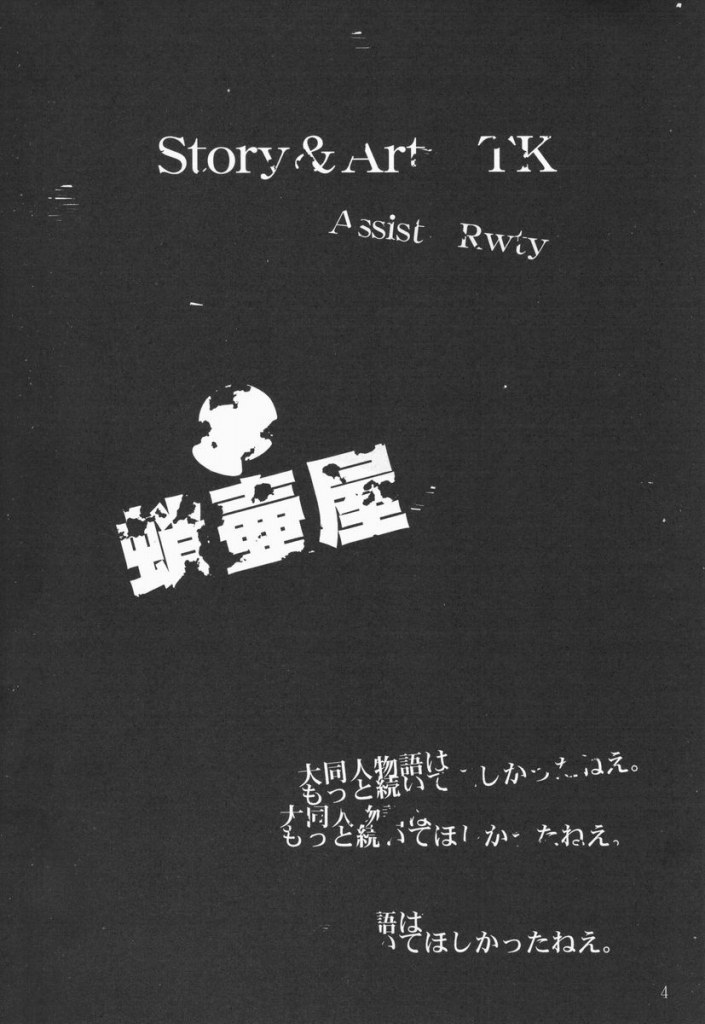 Story & Art TK
Assist Rwty
蛸壷屋
大同人物語は
もっと続いて しかったねえ。
大同人物
もっと続いてほしかったねえ。
語は
いてほしかったねえ。
4